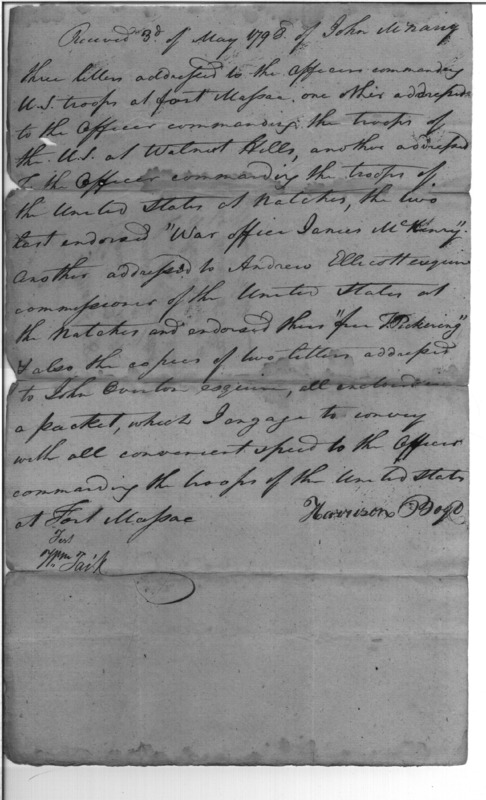 Received 3d. of May 1798. of John McNairy
three letters addressed to the Officers commanding
U.S. troops at fort Massac, one other addressed
to the Officer commanding the troops of
the U.S. at Walnut Hills, another addressed
to the Officer commanding the troops of
the United States at Natches, the two
last endorsed "War office James McHenry".
another addressed to Andrew Ellicott esquire
commissioner of the United States at
the Natches and endorsed thus "free T. Pickering"
& also the copies of two letters addressed
to John Overton esquire, all enclosed in
a packet, which I engage to convey
with all convenient speed to the Officer
commanding the troops of the United States
at Fort Massac
Harrison Boyd
Test
Wm. Tait